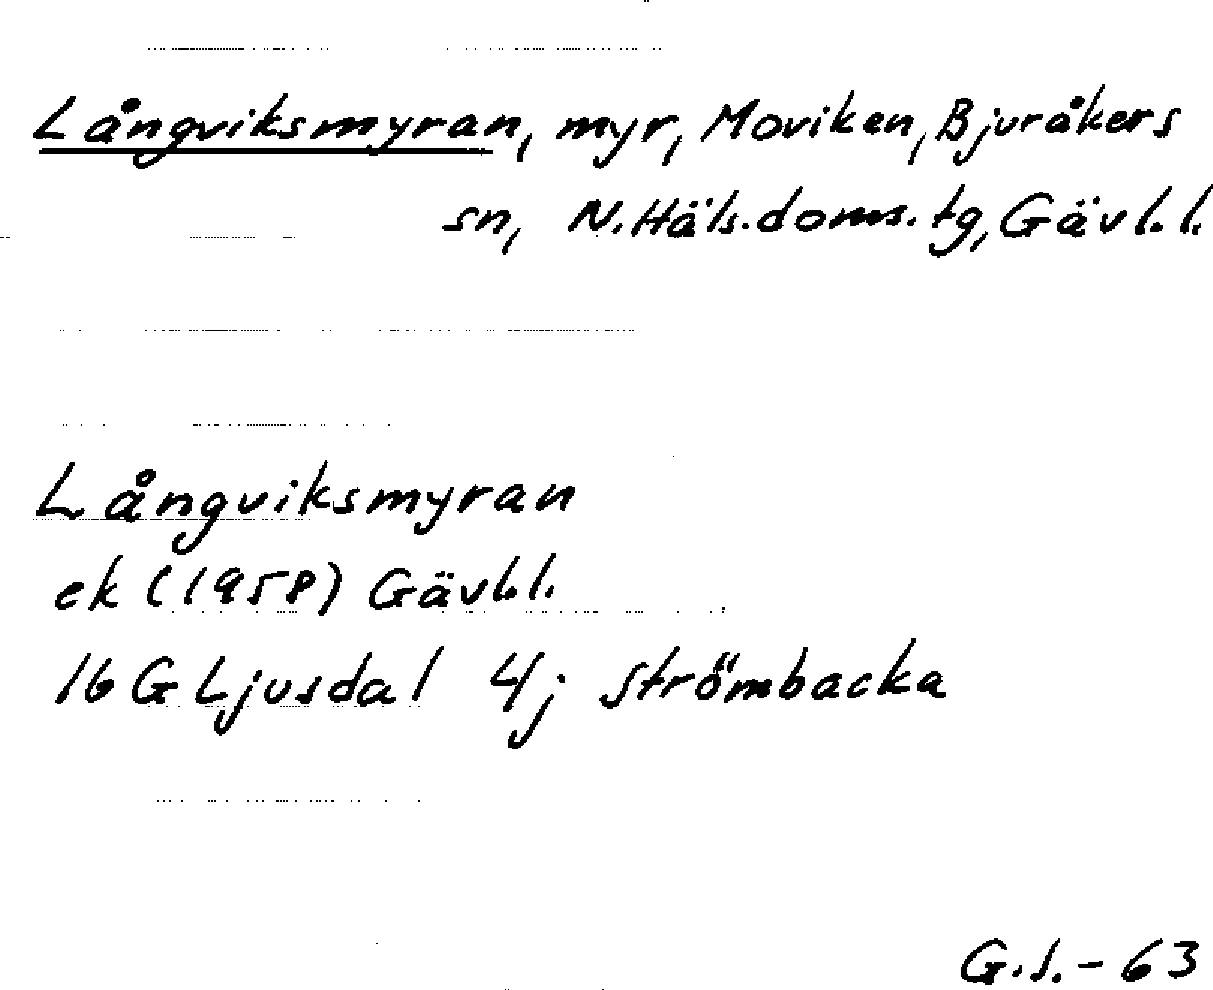 Långviksmyran, myr, Moviken, Bjuråkers
sn, N.Häls.doms.tg, Gävl.l.
Långviksmyran
ek (1958) Gävl.l.
16 G Ljusdal 4j Strömbacka
G.S.-63